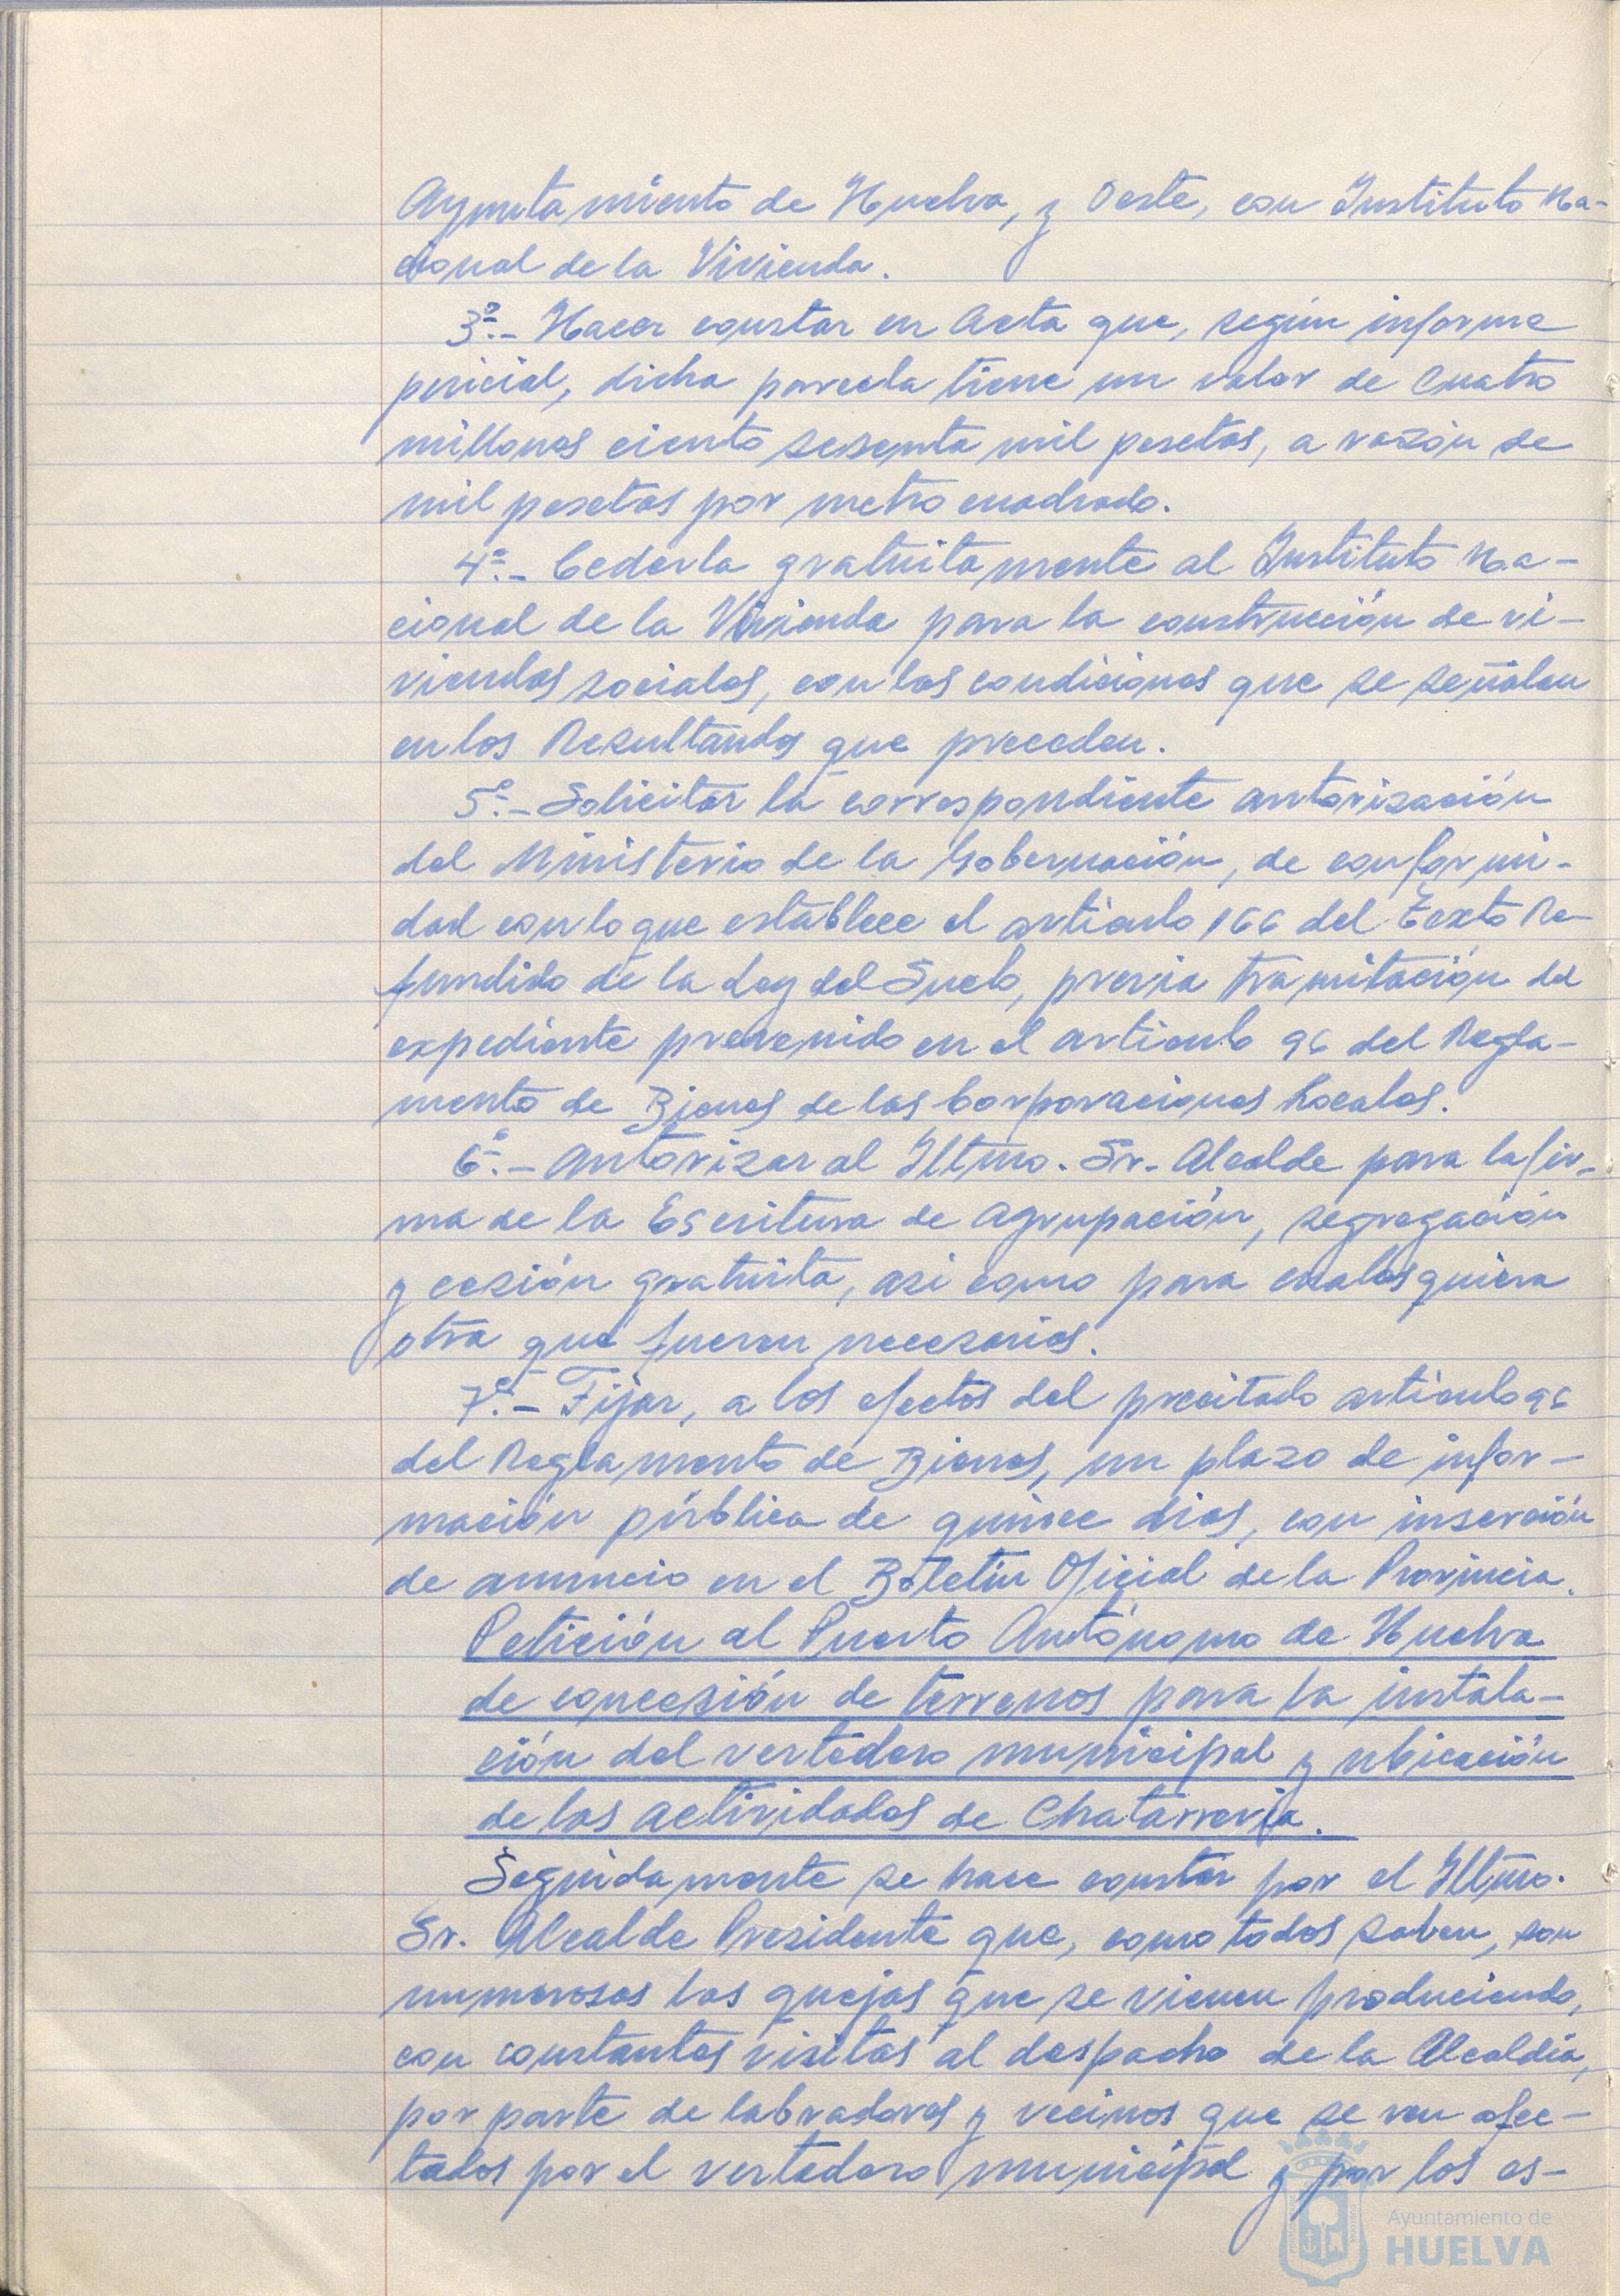 Ayuntamiento de Huelva, y Oeste, con Instituto Na-
cional de la Vivienda.
3º.- Hacer constar en Acta que, según informe
pericial, dicha parcela tiene un valor de cuatro
millones ciento sesenta mil pesetas, a razón de
mil pesetas por metro cuadrado.
4º.- Cederla gratuitamente al Instituto Na-
cional de la Vivienda para la construcción de vi-
viendas sociales, con las condiciones que se señalan
en los Resultandos que preceden.
5º.- Solicitar la correspondiente autorización
del Ministerio de la Gobernación, de conformi-
dad con lo que establece el artículo 166 del Texto Re-
fundido de la Ley del Suelo, previa tramitación del
expediente prevenido en el artículo 96 del Regla-
mento de Bienes de las Corporaciones Locales.
6º.- Autorizar al Iltmo. Sr. Alcalde para la fir-
ma de la Escritura de Agrupación, segregación
y cesión gratuita, asi como para cualesquiera
otra que fueren necesarias.
7º.- Fijar, a los efectos del precitado artículo 96
del Reglamento de Bienes, un plazo de infor-
mación pública de quince dias, con inserción
de anuncio en el Boletín Oficial de la Provincia.
Petición al Puerto Autónomo de Huelva
de concesión de terrenos para la instala-
ción del vertedero municipal y ubicación
de las actividades de Chatarrería.
Seguidamente se hace constar por el Iltmo.
Sr. Alcalde Presidente que, como todos saben, son
numerosas las quejas que se vienen produciendo,
con constantes visitas al despacho de la Alcaldía,
por parte de labradores y vecinos que se ven afec-
tados por el vertedero municipal y por los es-
Ayuntamiento de
HUELVA